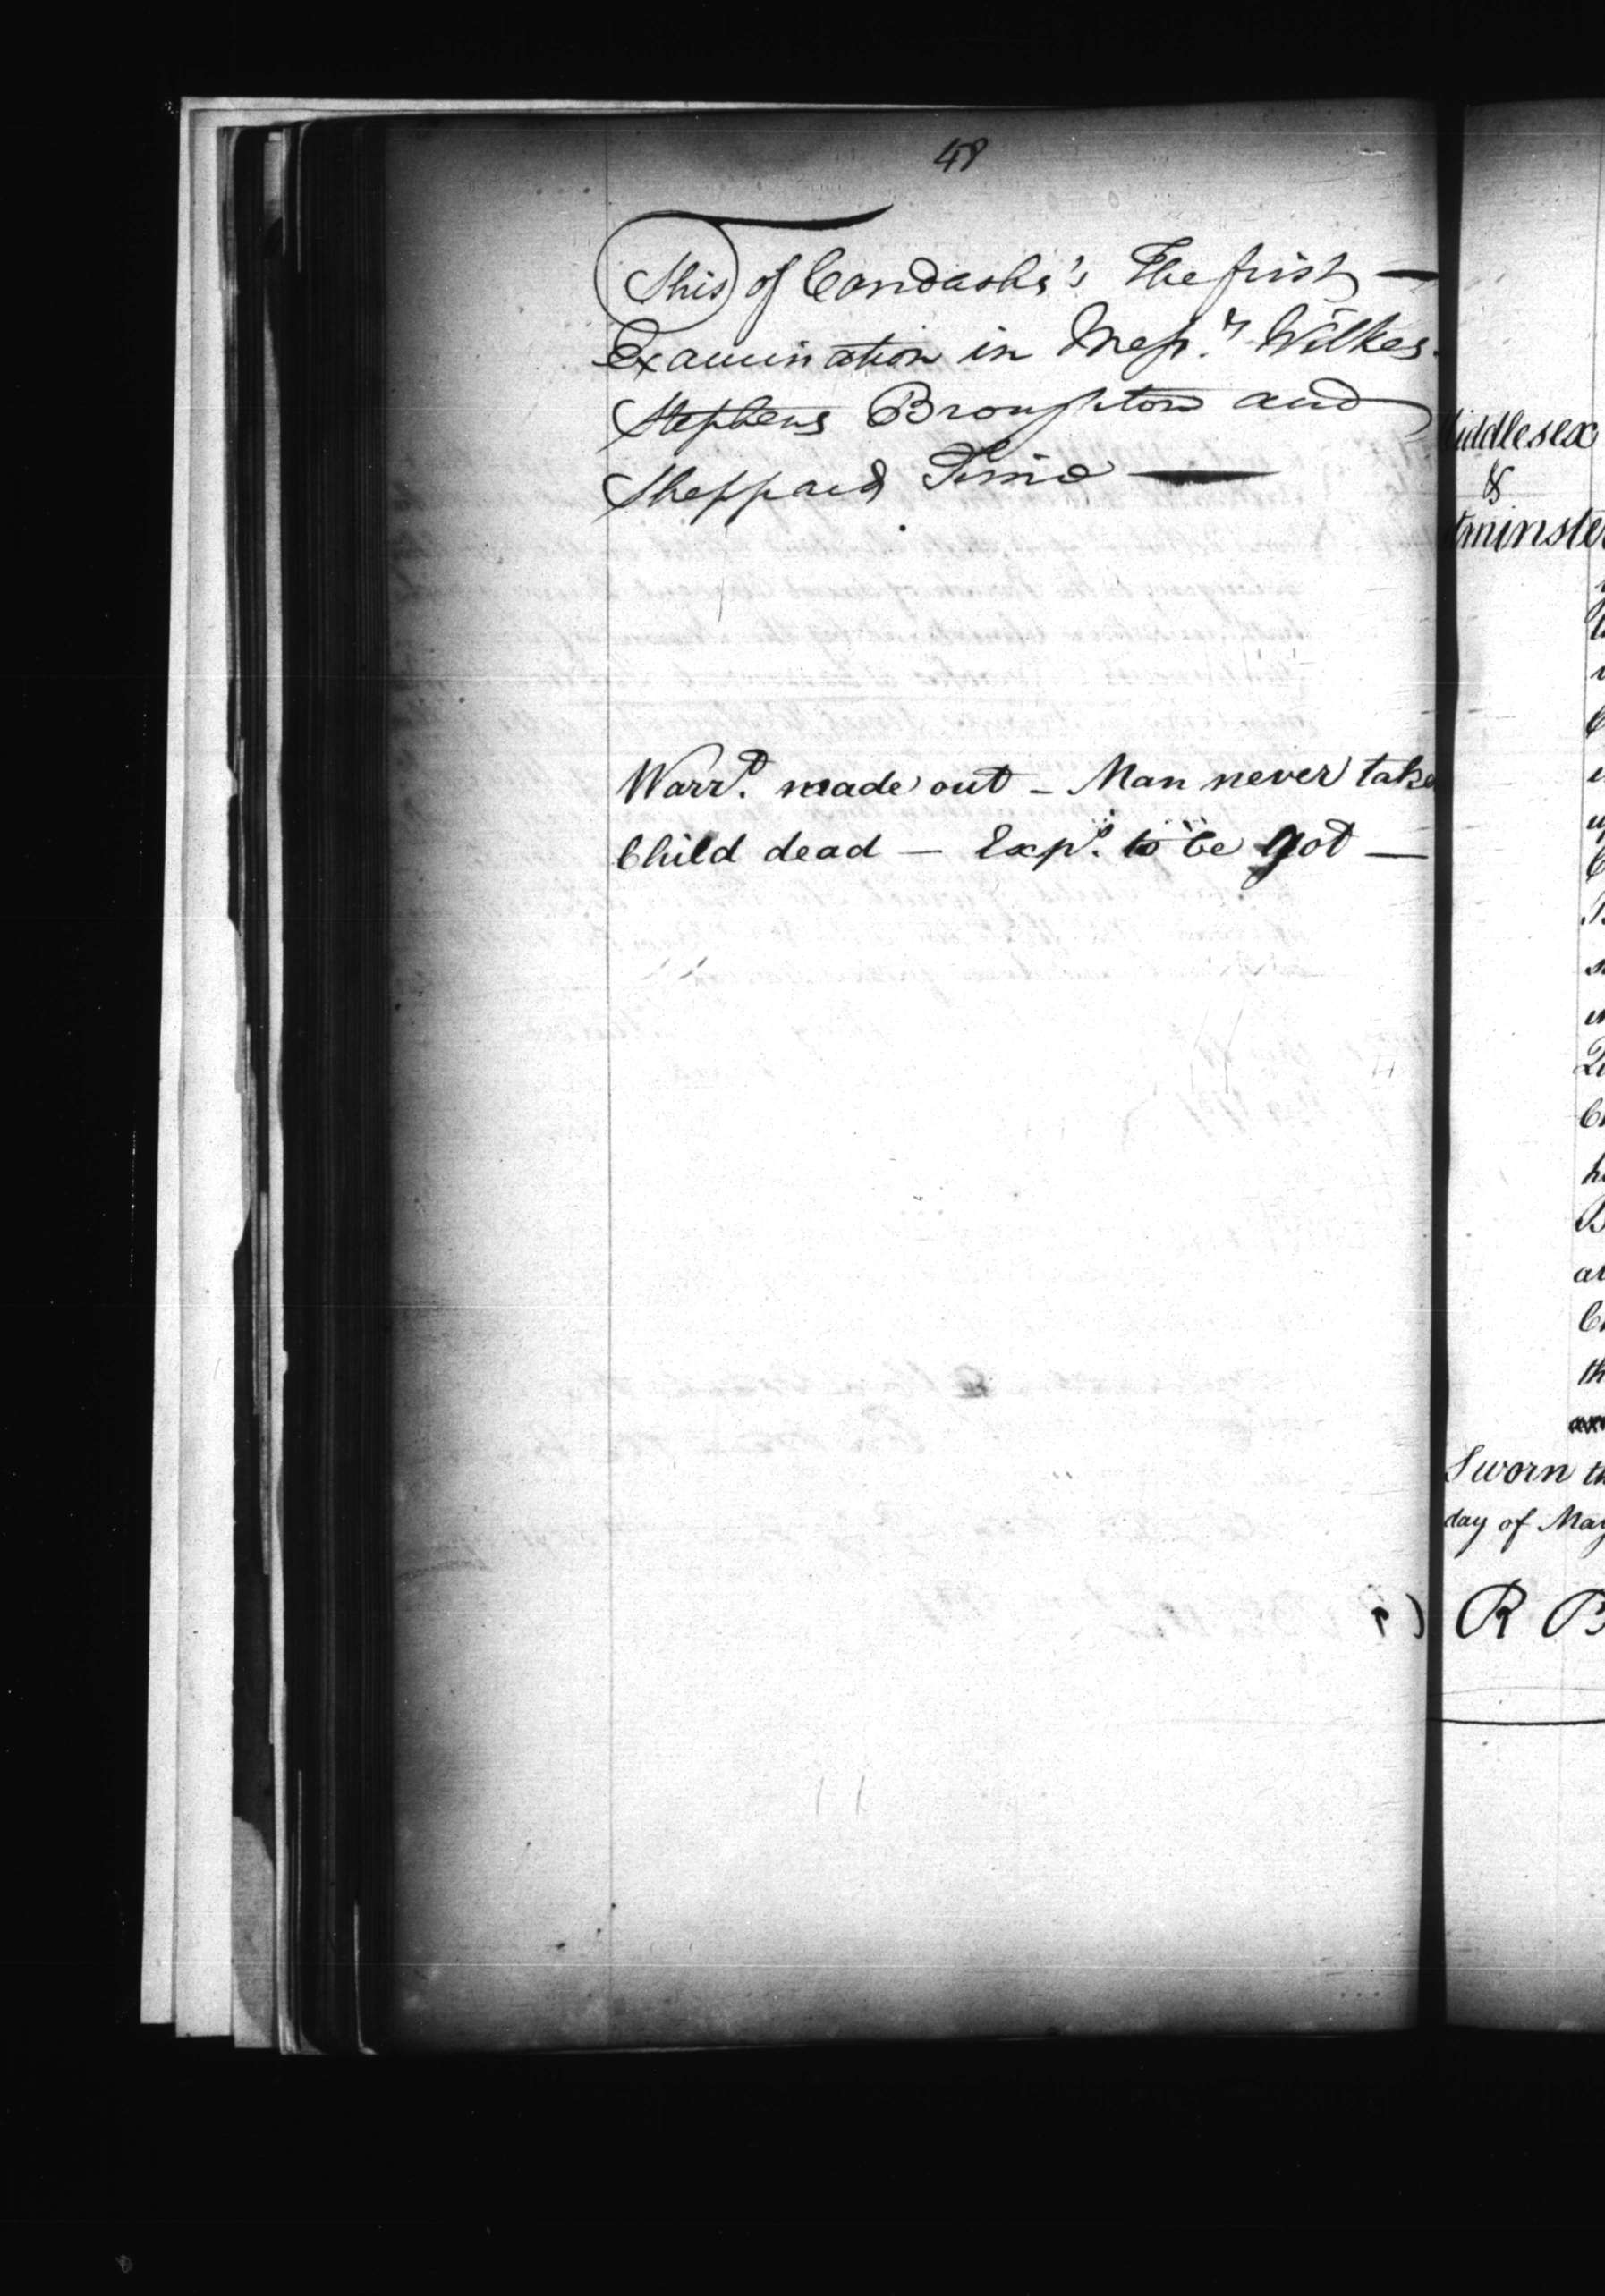 48
This of Candasha's The first —
Examination in Mess.rs Wilkes
Stephens Broughton and
Sheppard Time —
Warr.t made out - Man never take
Child dead - Exp.s to be got —
iddlesex
&
tminster
Sworn th
day of May
R B